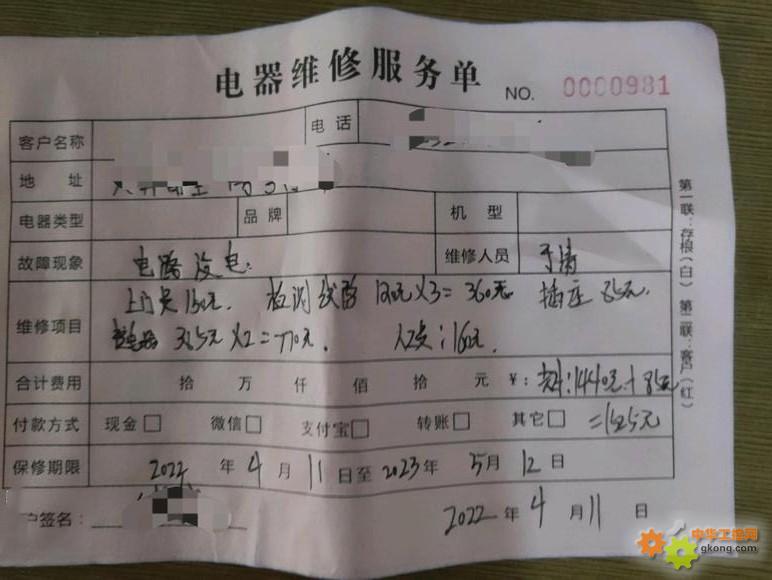 电器维修服务单 NO. 0000981
客户名称 电话
地址
电器类型 品牌 机型
故障现象 电路没电. 维修人员
上门费150元. 检测线路120元X3=360元. 插座85元.
维修项目 385元X2=770元. 人工费:160元.
合计费用 拾 万 仟 佰 拾 元 ¥: 1440元+85元
付款方式 现金□ 微信□ 支付宝□ 转账□ 其它□ =1525元
保修期限 2022 年 4 月 11 日至 2023 年 5 月 12 日
户签名:
2022 年 4 月 11 日
第一联:存根(白) 第二联:客户(红)
中华工控网
gkong.com